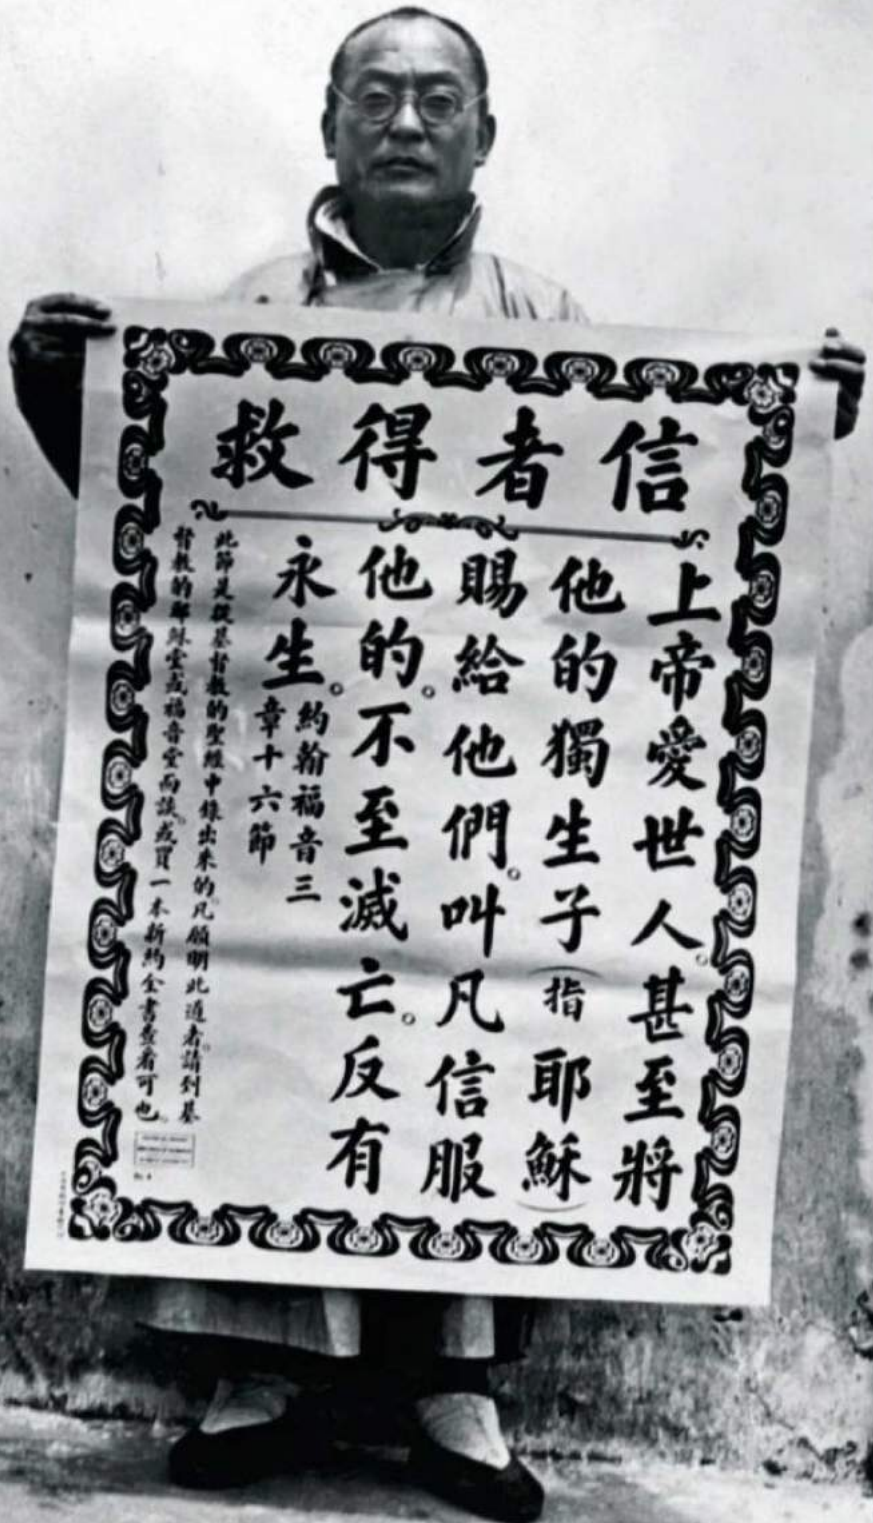 信者得救
上帝愛世人。甚至將
他的獨生子(指耶穌)
賜給他們。叫凡信服
他的。不至滅亡。反有
永生。
約翰福音三
章十六節
此節是從基督教的聖經中錄出來的。凡願明此道者。請到基
督教的耶穌堂或福音堂面談。或買一本新約全書查看可也。